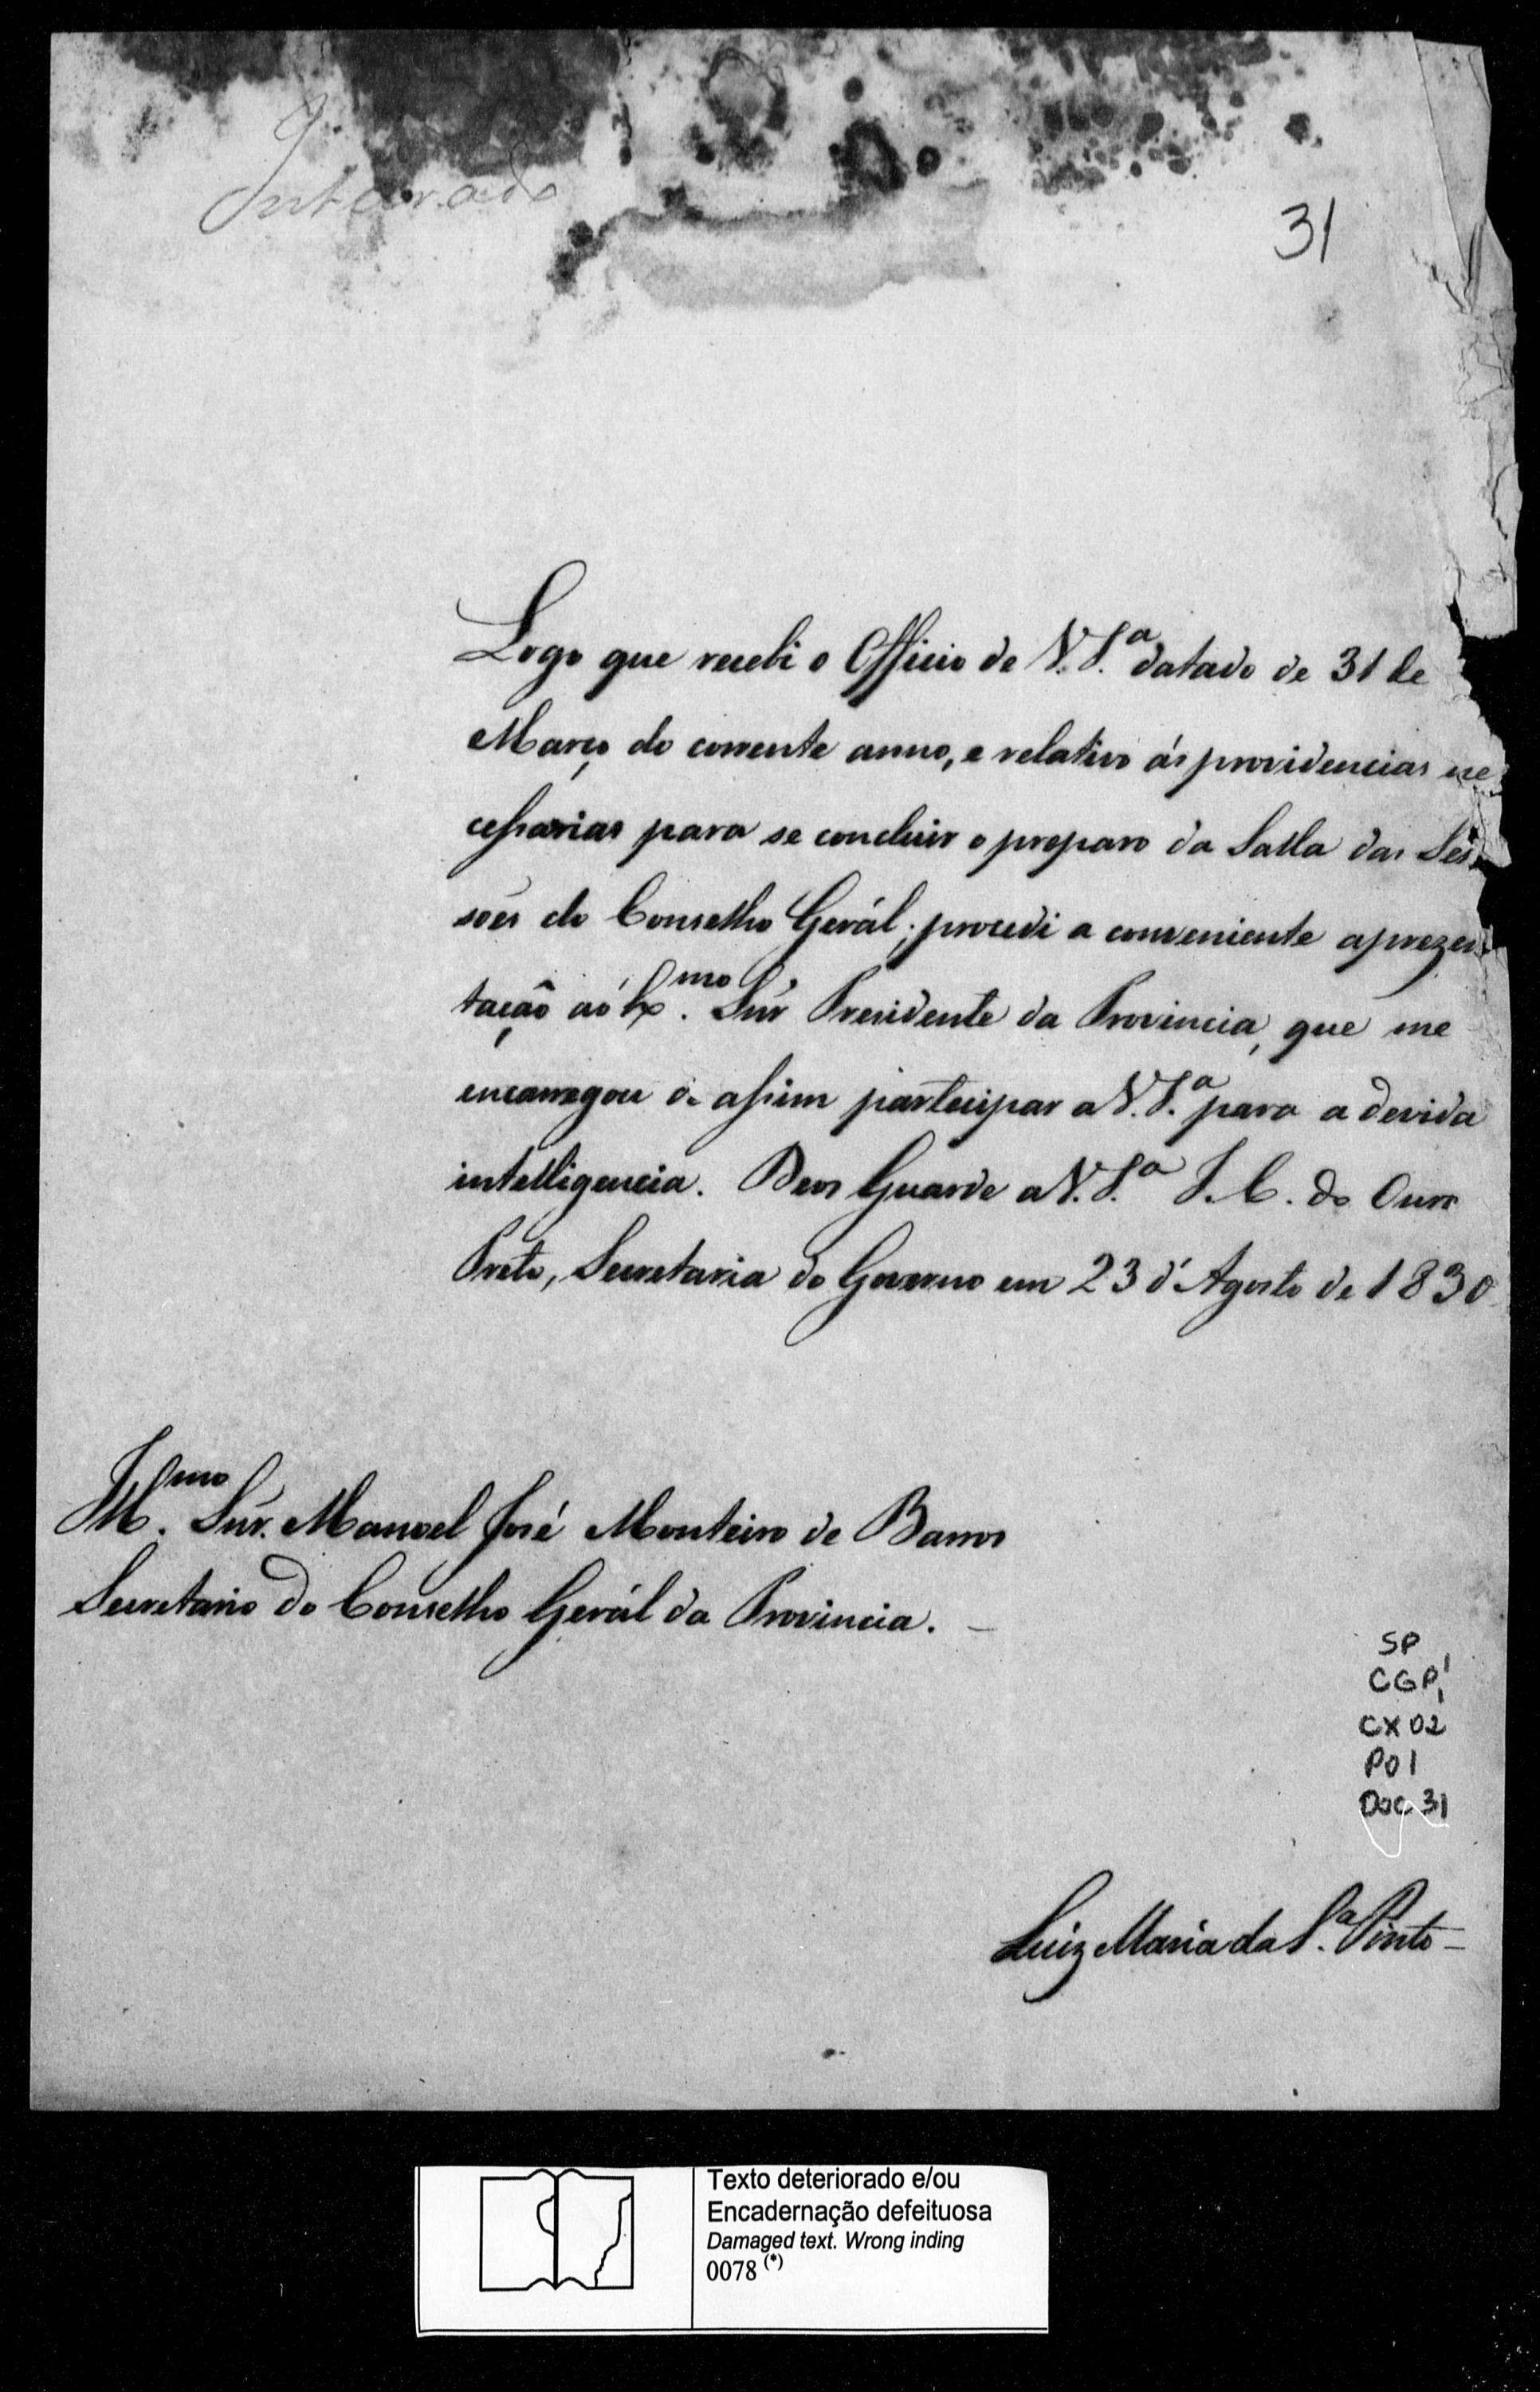 Inteirado
31
Logo que recebi o Officio de V. S.ª datado de 31 de
Março do corrente anno, e relativo ás providencias ne
cessarias para se concluir o preparo da Salla das Ses
soẽs do Conselho Gerál; procedi a conveniente aprezen
tação aó Ex.mo Sñr Presidente da Provincia, que me
encarregou de assim partecipar a V. S.ª para a devida
intelligencia. Deos Guarde a V. S.ª I. C. do Ouro
Preto, Secretaria do Governo em 23 d'Agosto de 1830
Ill.mo Sñr. Manoel José Monteiro de Barros
Secretario do Conselho Gerál da Provincia. —
SP
CGP1
CX 02
P01
Doc 31
Luiz Maria da S.ª Pinto —
Texto deteriorado e/ou
Encadernação defeituosa
Damaged text. Wrong inding
0078 (*)